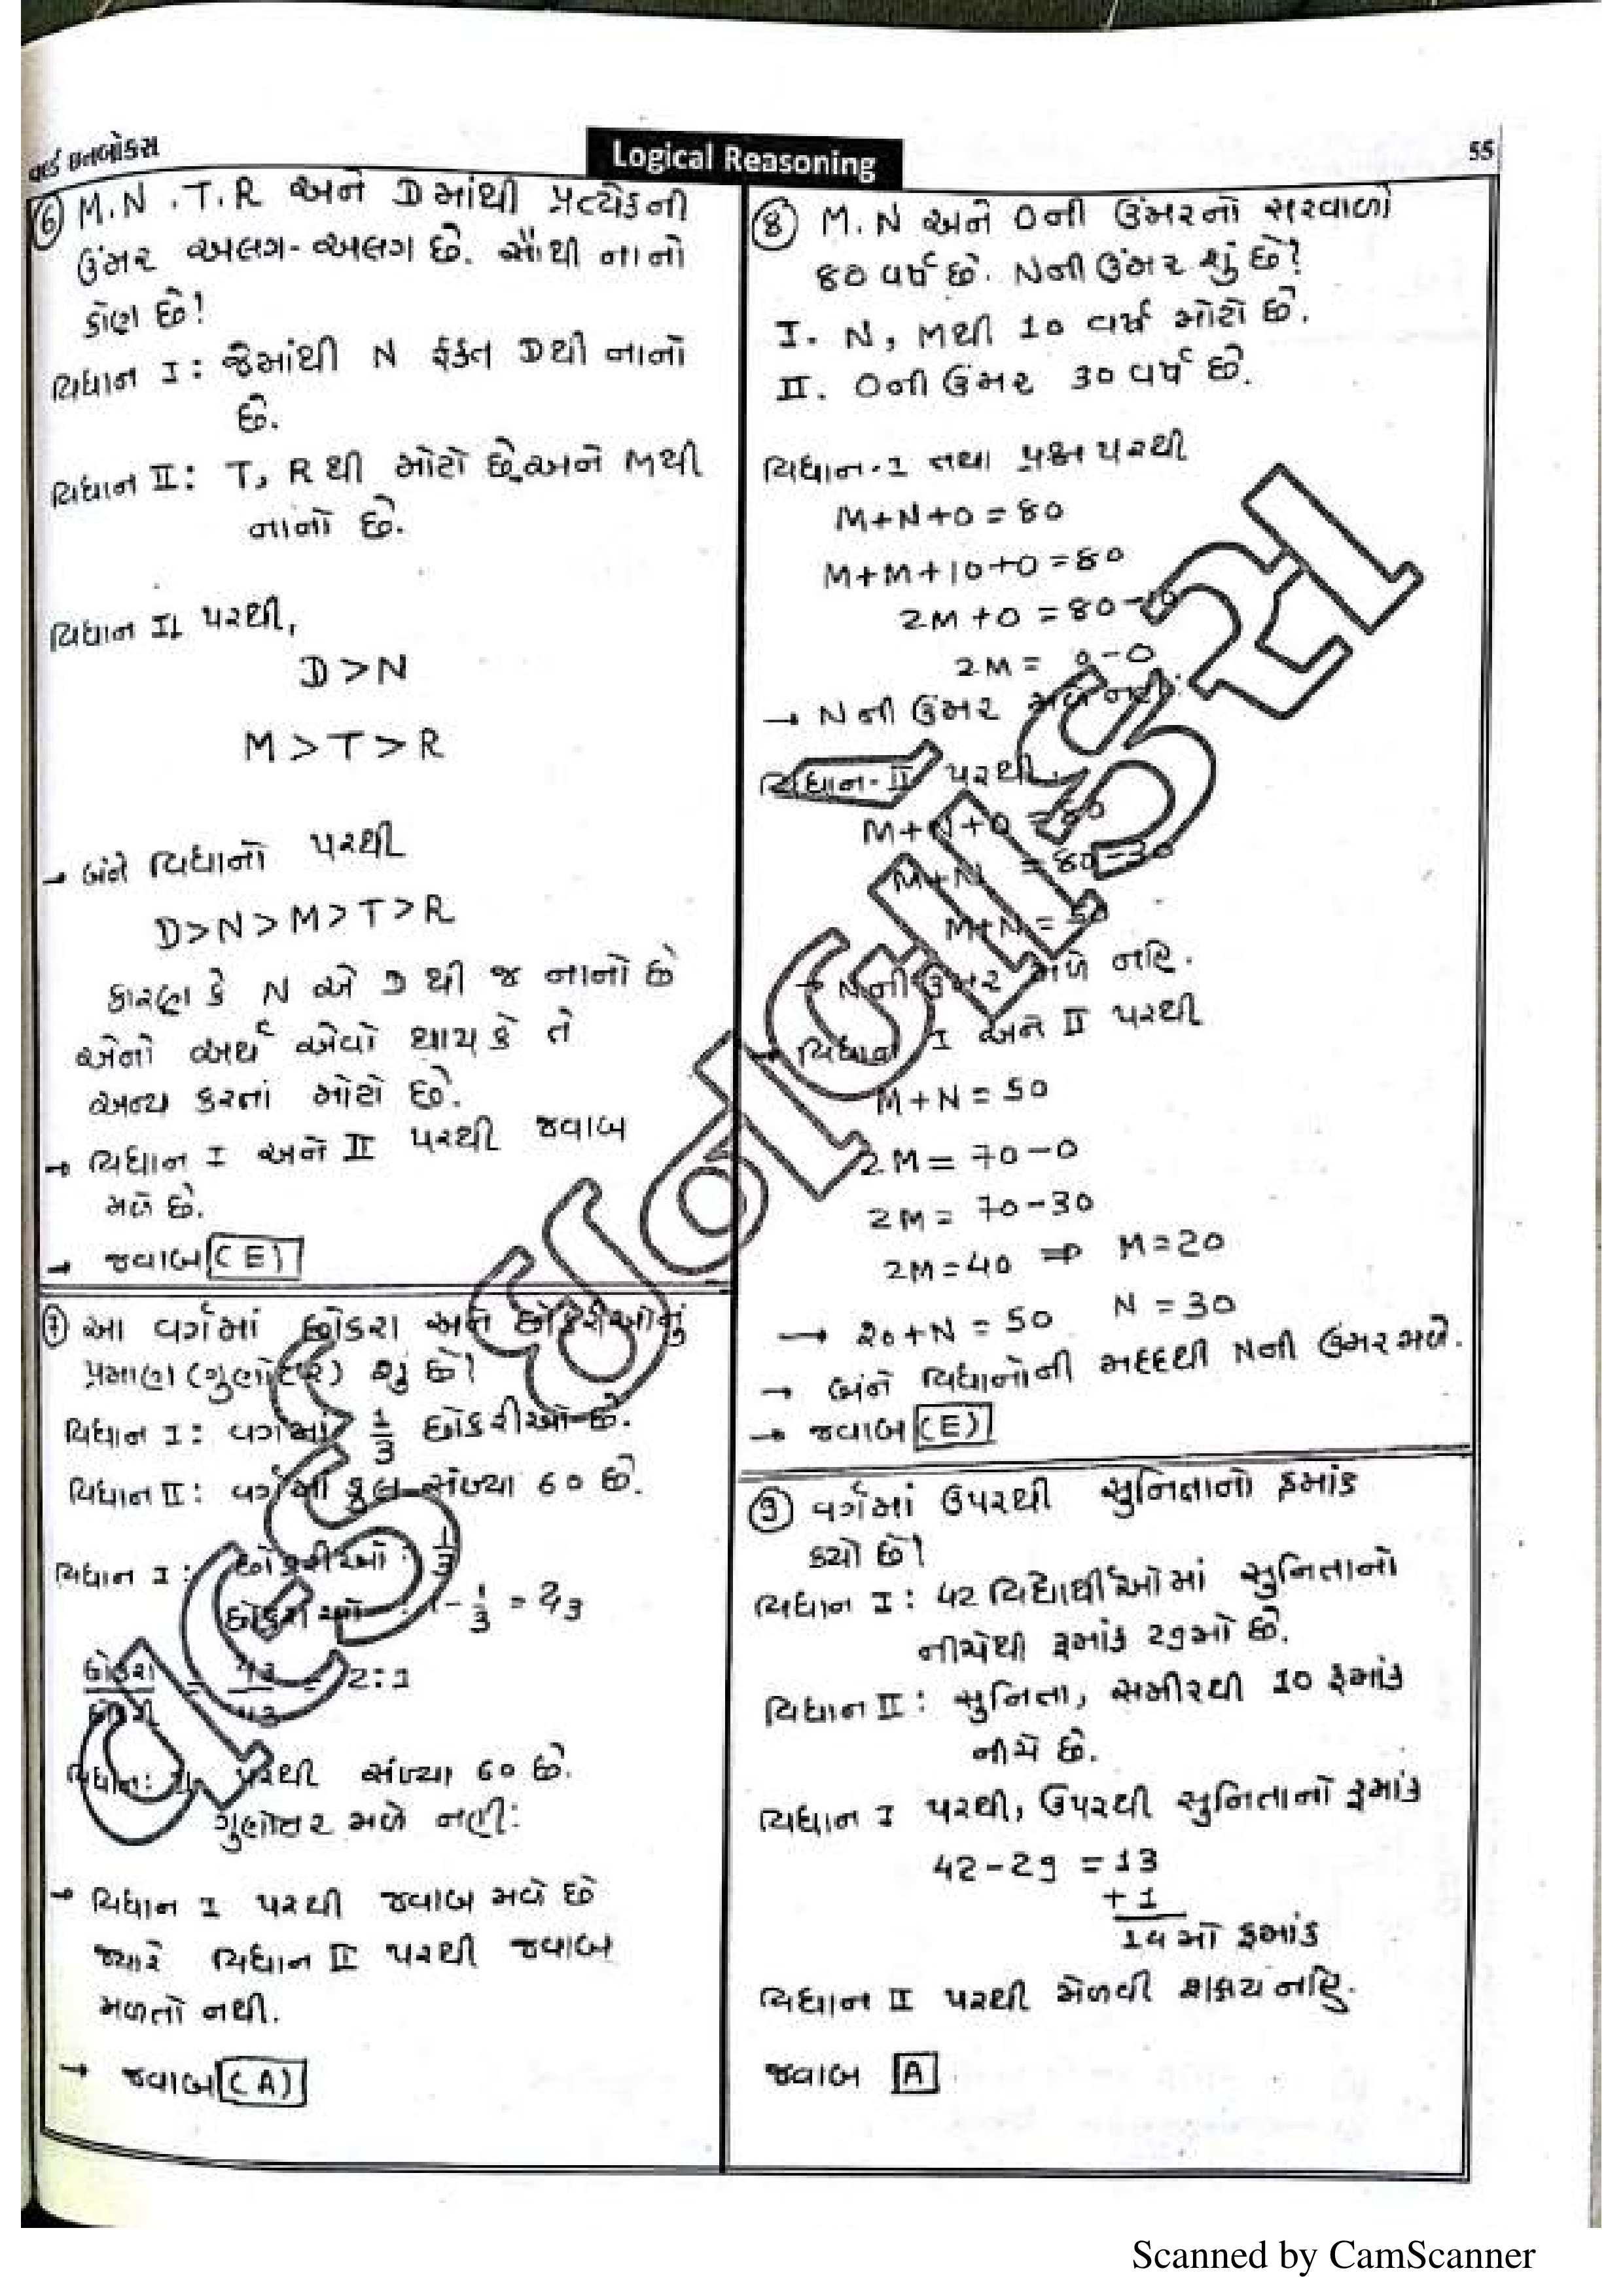 વર્લ્ડ ઇનબોક્સ
Logical Reasoning
55
⑥ M.N.T.R અને Dમાંથી પ્રત્યેકની
ઉંમર અલગ-અલગ છે. સૌથી નાનો
કોણ છે!
વિધાન I: જેમાંથી N ફક્ત Dથી નાનો
છે.
વિધાન II: T, R થી મોટો છે,અને Mથી
નાનો છે.
વિધાન II પરથી,
D>N
M>T>R
→ બંને વિધાનો પરથી
D>N>M>T>R
કારણ કે N એ D થી જ નાનો છે
એનો અર્થ એવો થાય કે તે
અન્ય કરતાં મોટો છે.
→ વિધાન I અને II પરથી જવાબ
મળે છે.
→ જવાબ (E)
⑦ આ વર્ગમાં છોકરા અને છોકરીઓનું
પ્રમાણ (ગુણોત્તર) શું છે!
વિધાન I: વર્ગમાં 1/3 છોકરીઓ છે.
વિધાન II: વર્ગમાં કુલ સંખ્યા 60 છે.
વિધાન I: છોકરીઓ : 1/3
છોકરાઓ 1 - 1/3 = 2/3
છોકરા = 2:1
પરથી સંખ્યા 60 છે.
ગુણોત્તર મળે નહી:
→ વિધાન I પરથી જવાબ મળે છે
જ્યારે વિધાન II પરથી જવાબ
મળતો નથી.
→ જવાબ (A)
⑧ M.N અને Oની ઉંમરનો સરવાળો
80 વર્ષ છે. Nની ઉંમર શું છે!
I. N, Mથી 10 વર્ષ મોટો છે.
II. Oની ઉંમર 30 વર્ષ છે.
વિધાન-I તથા પ્રશ્ન પરથી
M+N+O=80
M+M+10+O=80
2M+O=80-10
2M= -O
→ Nની ઉંમર મળે નહિ.
વિધાન-II પરથી,
M+N+O=80
M+N =80-30
M+N=50
→ Nની ઉંમર મળે નહિ.
→ વિધાન I અને II પરથી
M+N=50
2M=70-O
2M=70-30
2M=40 ⇒ M=20
→ 20+N=50 N=30
→ બંને વિધાનોની મદદથી Nની ઉંમર મળે.
→ જવાબ (E)
⑨ વર્ગમાં ઉપરથી સુનિતાનો ક્રમાંક
ક્યો છે!
વિધાન I: 42 વિદ્યાર્થીઓમાં સુનિતાનો
નીચેથી ક્રમાંક 29મો છે.
વિધાન II: સુનિતા, સમીરથી 10 ક્રમાંક
નીચે છે.
વિધાન I પરથી, ઉપરથી સુનિતાનો ક્રમાંક
42-29 =13
+1
14મો ક્રમાંક
વિધાન II પરથી મેળવી શકાય નહિ.
જવાબ A
Scanned by CamScanner